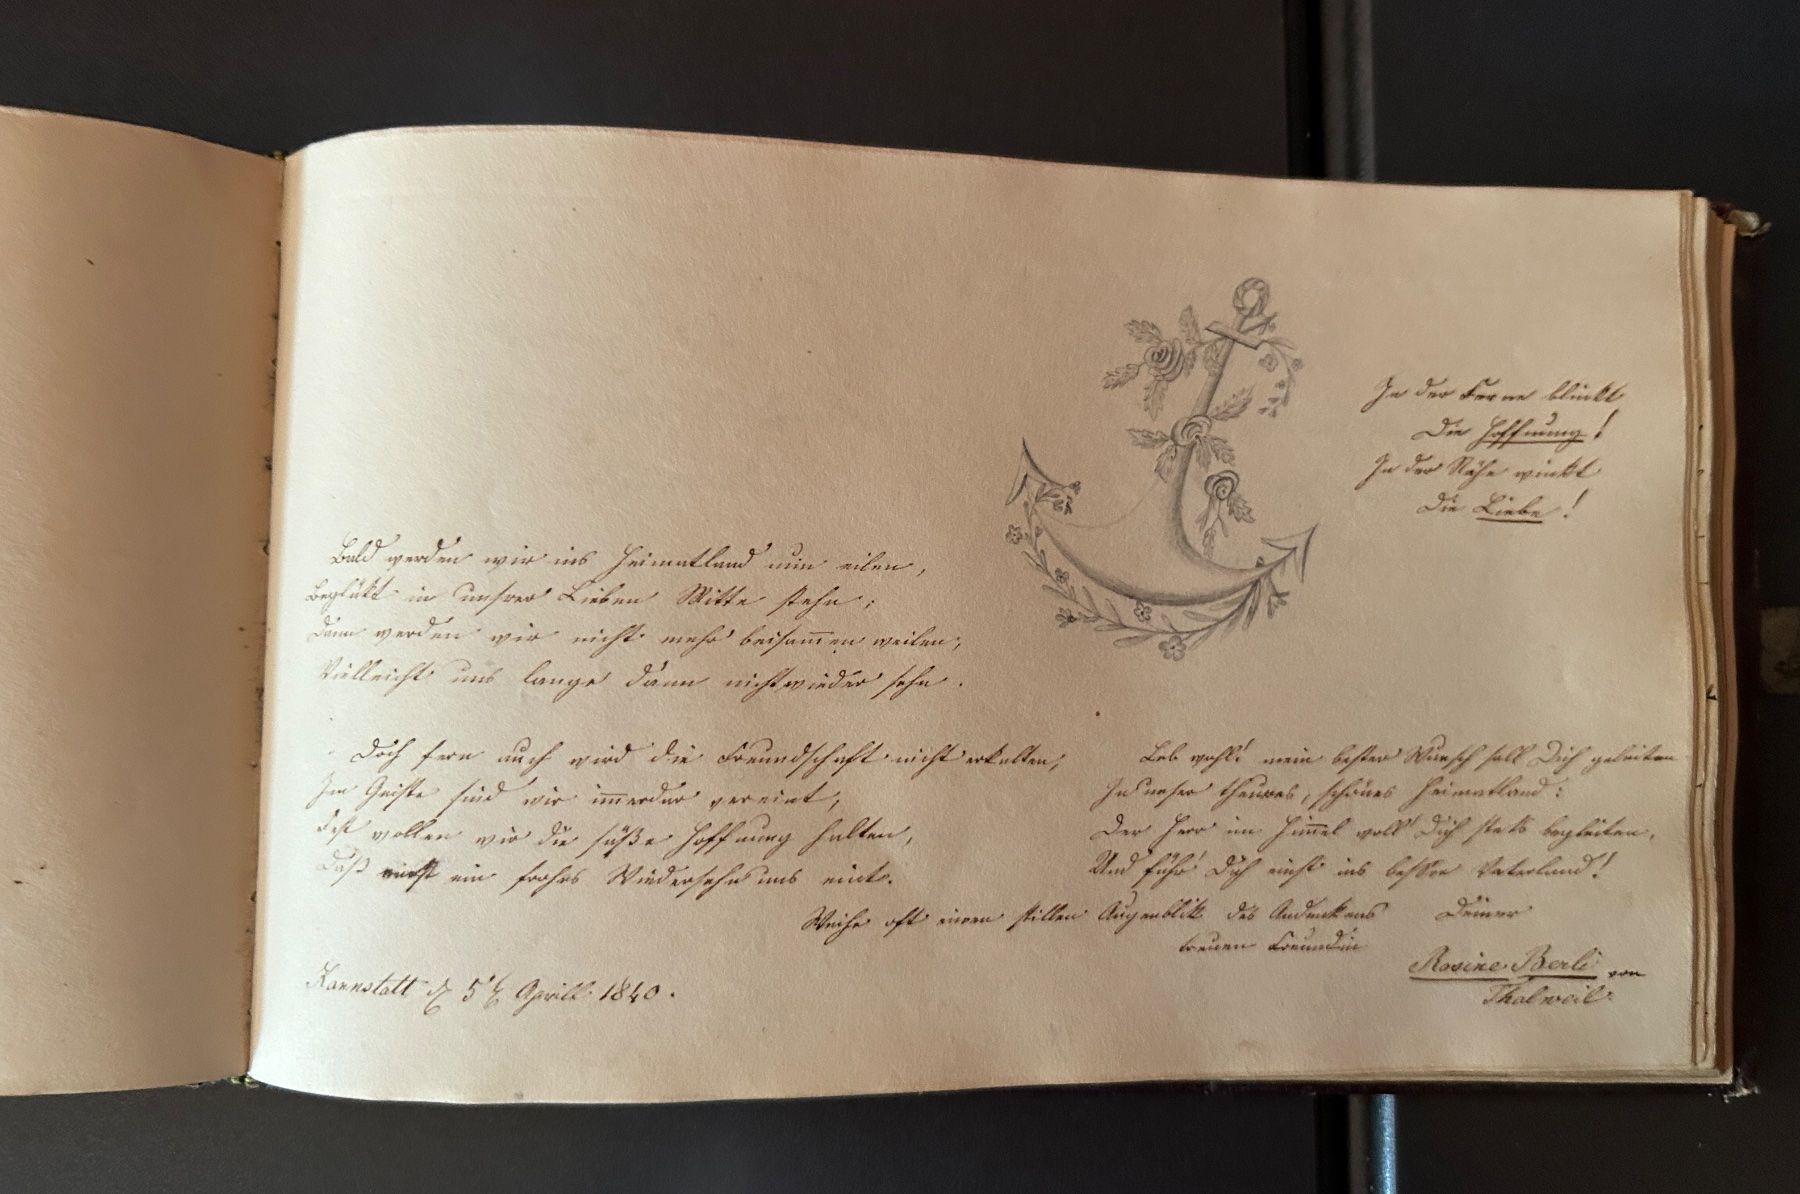 In der Ferne blinkt
Die Hoffnung!
In der Nähe winkt
Die Liebe!
Bald werden wir ins Heimatland nun eilen,
Beglükt in unsrer Lieben Mitte stehn;
Dann werden wir nicht mehr beisam̅en weilen,
Vielleicht uns lange dann nicht wieder sehn.
Doch fern auch wird die Freundschaft nicht erkalten,
Im Geiste sind wir im̅erdar vereint,
Fest wollen wir die süße Hoffnung halten,
Daß einst ein frohes Wiedersehn uns eint.
Leb wohl! mein bester Wunsch soll Dich geleiten
In unser theures, schönes Heimatland:
Der Herr im Him̅el woll' Dich stets begleiten,
Und führ' Dich einst ins bessre Vaterland!
Weihe oft einen stillen Augenblik des Andenkens Deiner
treuen Freundin
Rosine Berli von
Thalweil
Kannstatt d 5t Aprill 1840.